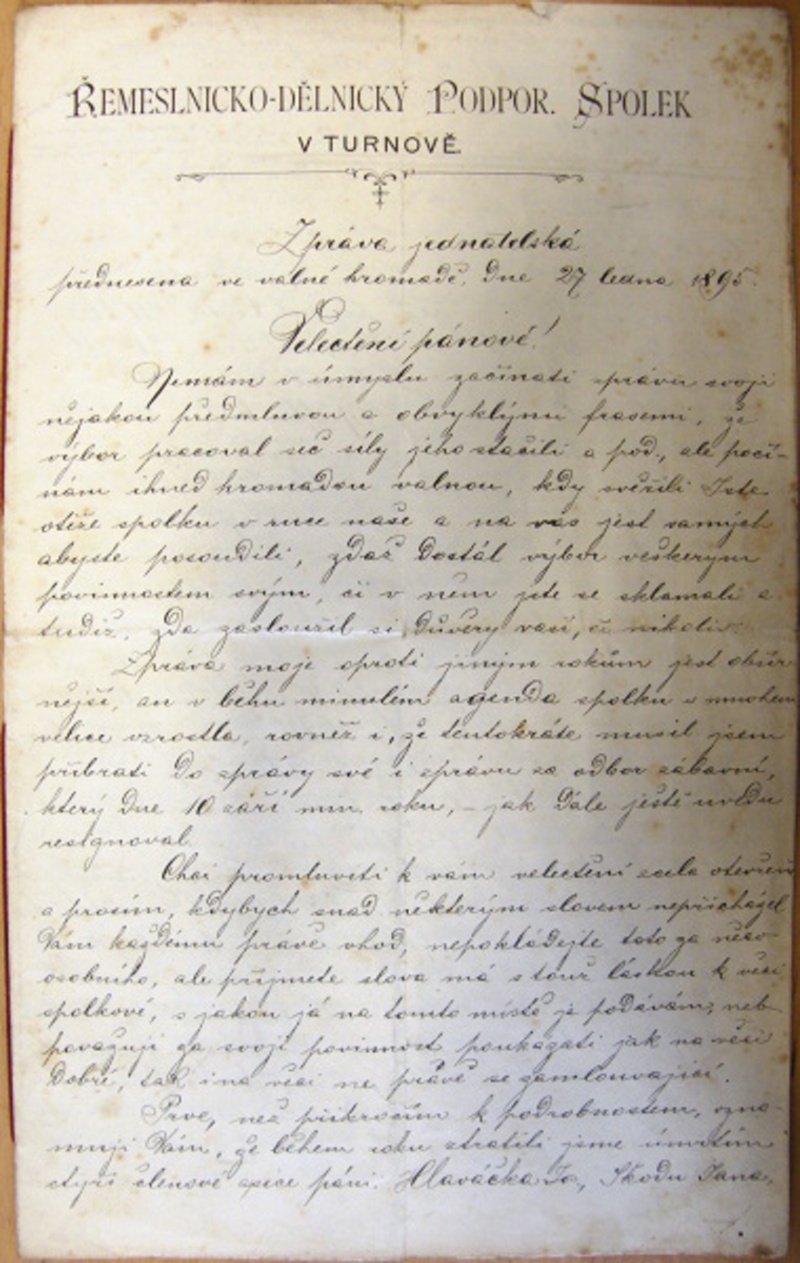 ŘEMESLNICKO-DĚLNICKÝ PODPOR. SPOLEK
V TURNOVĚ.
Zpráva jednatelská
přednesena ve valné hromadě, dne 27 ledna 1895.
Velectění pánové!
Nemám v úmyslu začínati zprávu svoji
nějakou předmluvou a obvyklými frasemi, že
výbor pracoval seč síly jeho stačili a pod., ale počí-
nám ihned hromadou valnou, kdy svěřili Jste
otěže spolku v ruce naše a na vás jest samých
abyste posoudili, zdaž dostál výbor veškerým
povinnostem svým, či v něm jste se sklamali a
tudíž, zda zasloužil si důvěry vaší, či nikoliv.
Zpráva moje oproti jiným rokům jest obšír
nější, an v běhu minulém agenda spolku v mnohem
velice vzrostla, rovněž i, že tentokráte musil jsem
přibrati do zprávy své i zprávu za odbor zábavní,
který dne 10 září min. roku, – jak dále ještě uvedu
resignoval.
Chci promluviti k vám velectění zcela otevřeně
a prosím, kdybych snad některým slovem nepřicházel
Vám každému právě vhod, nepokládejte toto za něco
osobního, ale přijmete slova má s touž láskou k věci
spolkové, s jakou já na tomto místě je podávám, neb
považuji za svoji povinnost poukázati jak na věci
dobré, tak i na věci ne právě se zamlouvající.
Prve, než přikročím k podrobnostem, ozna-
muji Vám, že během roku ztratili jsme úmrtím
čtyři členové a sice páni: Hlaváčka Jo, Škodu Jana,